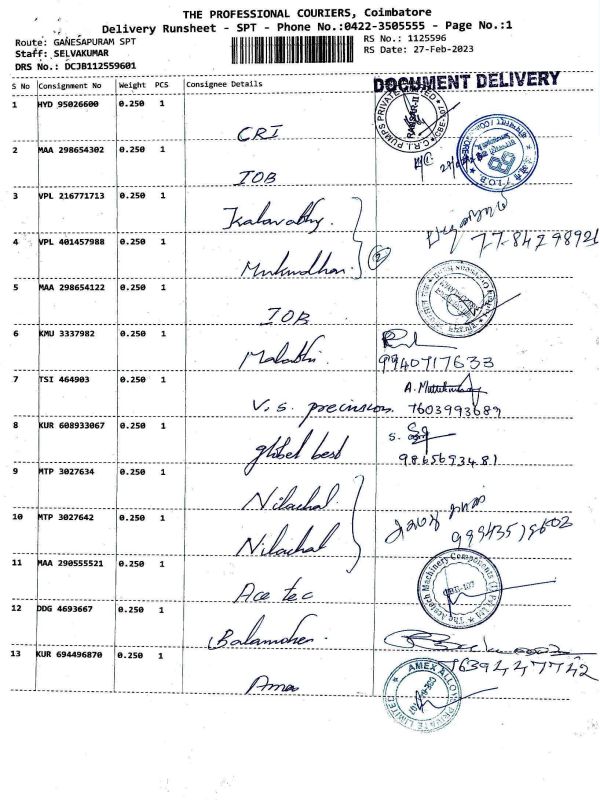 THE PROFESSIONAL COURIERS, Coimbatore
Delivery Runsheet - SPT - Phone No.:0422-3505555 - Page No.:1
Route: GANESAPURAM SPT
Staff: SELVAKUMAR
DRS No.: DCJB112559601
RS No.: 1125596
RS Date: 27-Feb-2023
S No Consignment No Weight PCS Consignee Details
DOCUMENT DELIVERY
1 HYD 95026600 0.250 1 CRI
C.R.I. PUMPS PRIVATE LIMITED
2 MAA 298654302 0.250 1 IOB
I.O.B.
3 VPL 216771713 0.250 1 Kalavathy.
4 VPL 401457988 0.250 1 Mukundhan. 2
77-84298921
5 MAA 298654122 0.250 1 IOB
6 KMU 3337982 0.250 1 Malathi
9940717633
7 TSI 464903 0.250 1 V. S. precision
7603993689
8 KUR 608933067 0.250 1 global best
S.
9865693481
9 MTP 3027634 0.250 1 Nilachal
10 MTP 3027642 0.250 1 Nilachal
11 MAA 290555521 0.250 1 Ace tec
The Acetech Machinery Components (I) Pvt Ltd
12 DDG 4693667 0.250 1
13 KUR 694496870 0.250 1 Amex
AMEX ALLOYS PRIVATE LIMITED